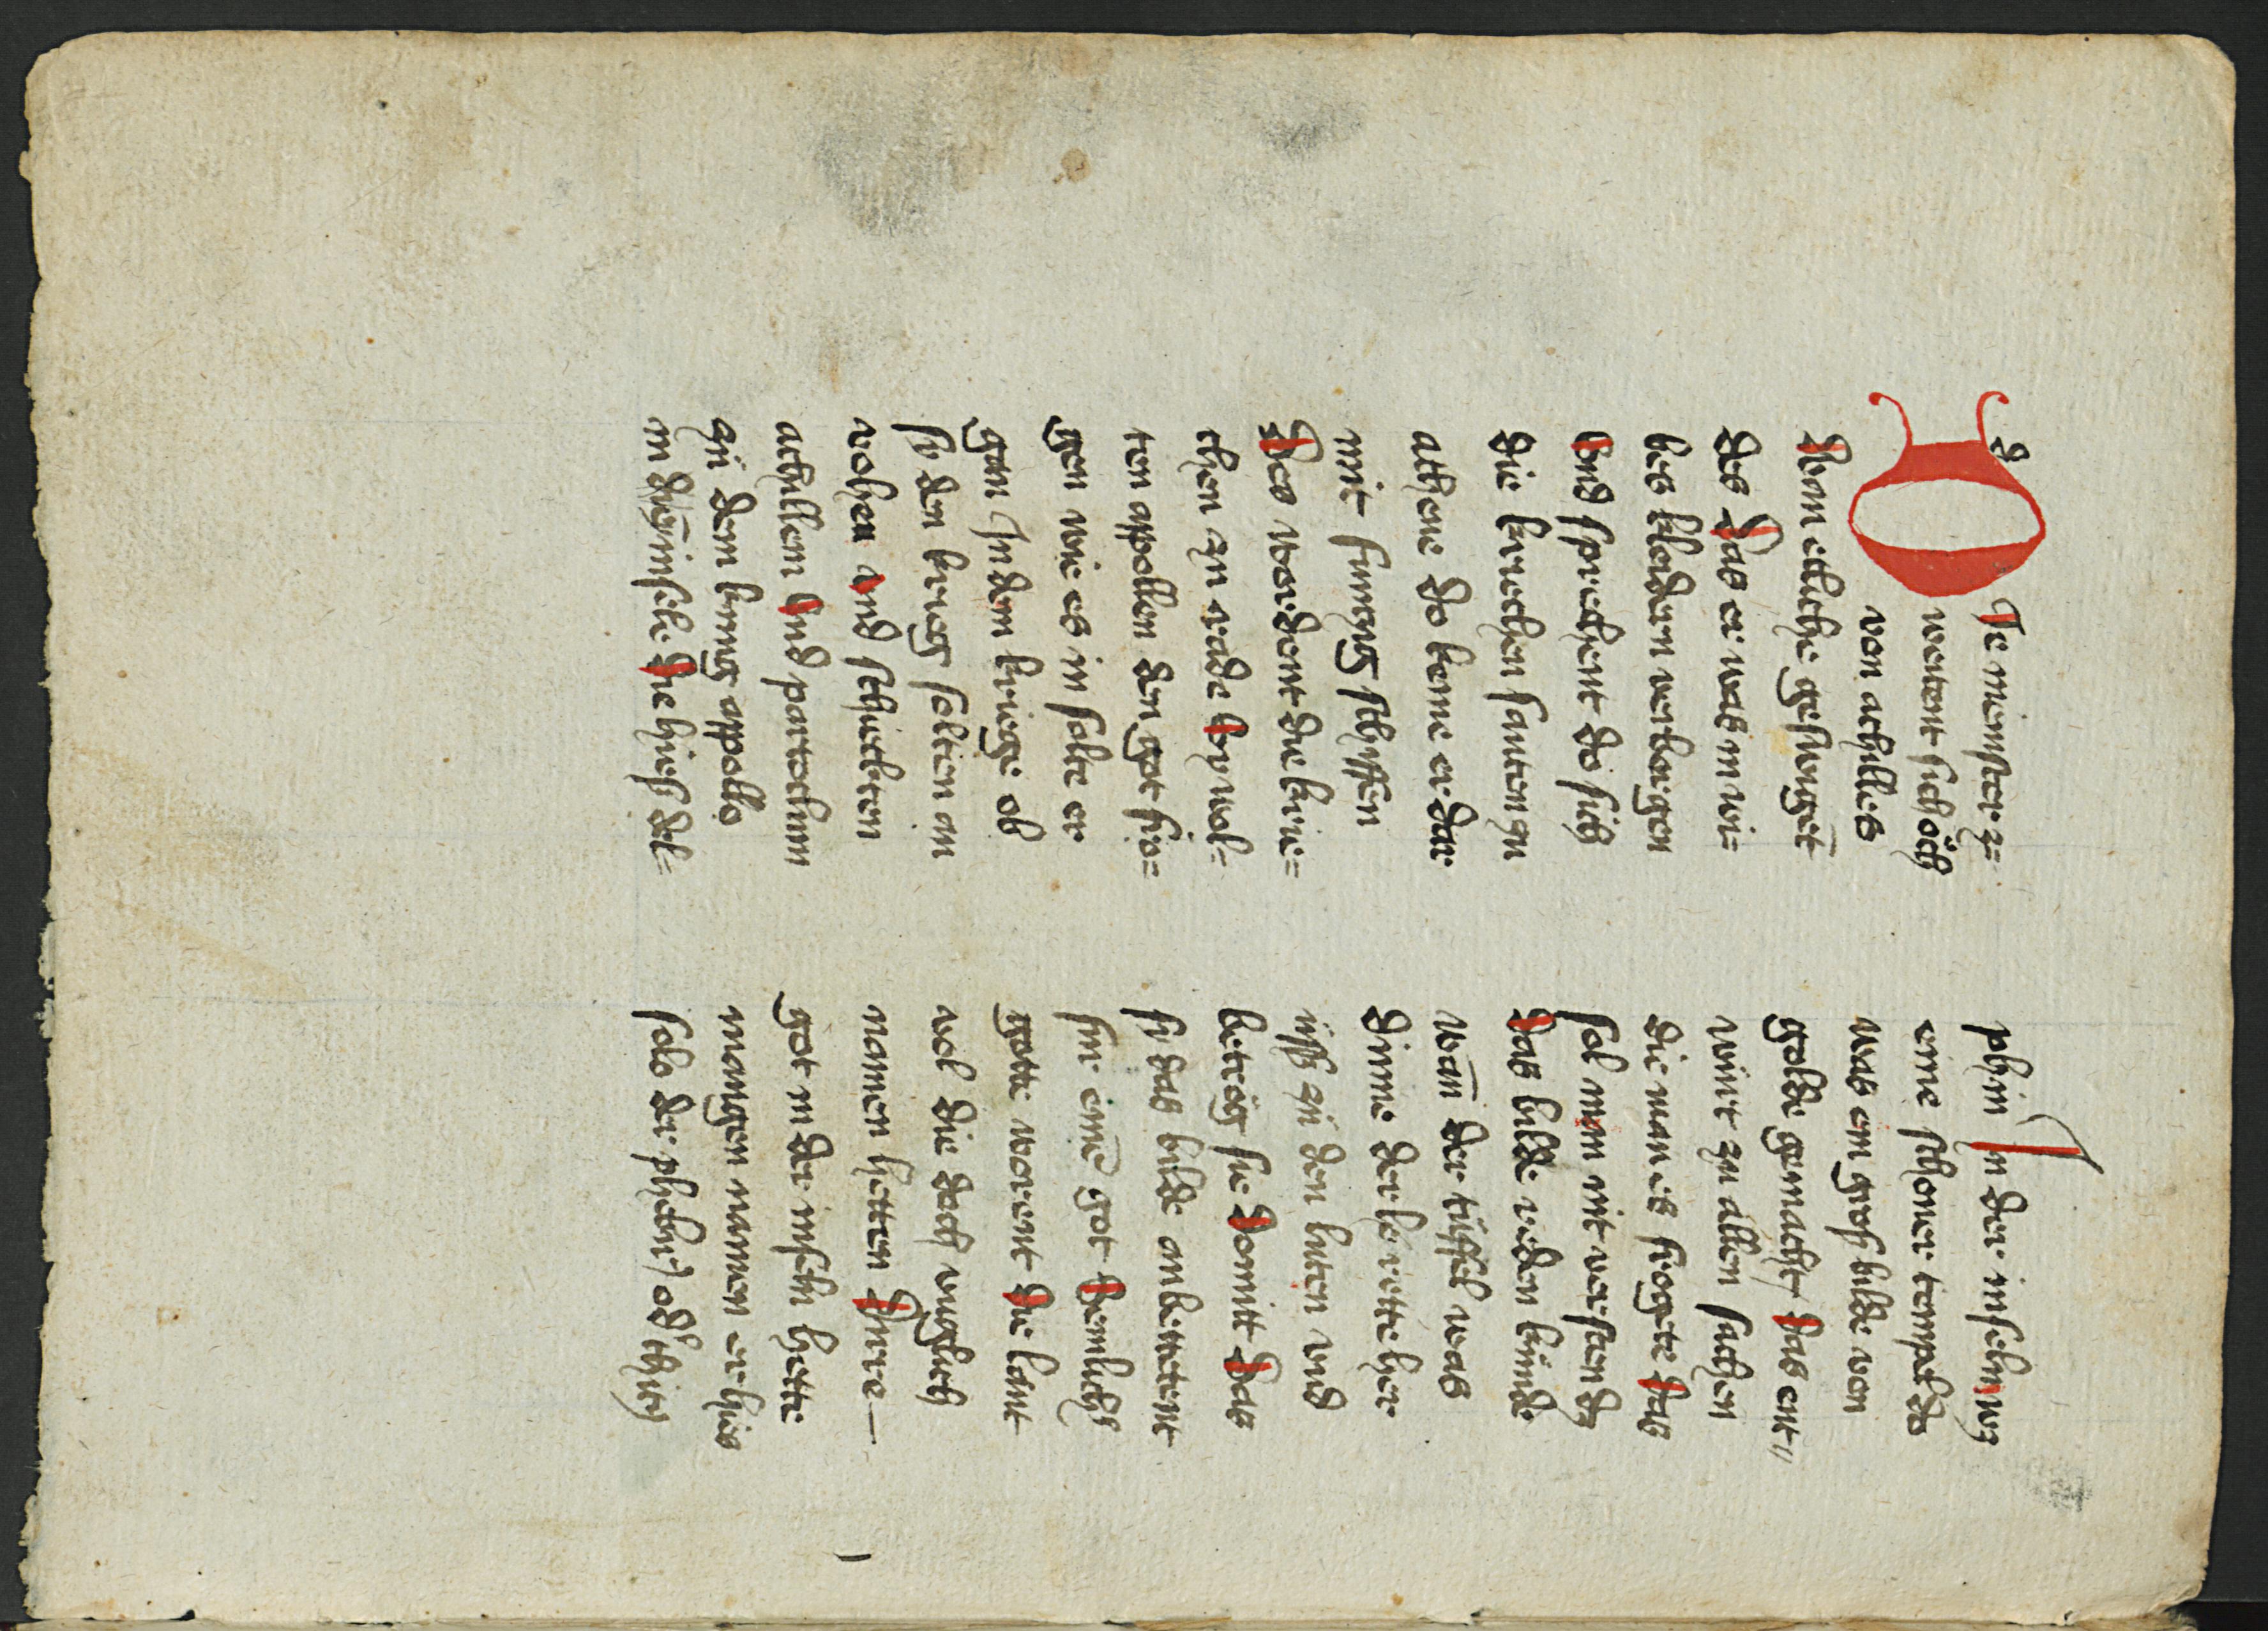 DJe meinster z=
wement sich öch
von achilles
Wan etliche geswigēt
des Das er was in wi=
bes kleidern verborgen
Vnd sprechent do sich
die kriechen santen gn
atthene do keme er dar
mit funczig schyffen
Hie wordent die krie=
chen zu rade Sy wol=
ten appollen den got fro=
gen wie es in solte er
gan Jn dem kriege ob
sù den krieg solten an
vohen vnd schickten
achillem Vnd partoclum
zü dem künig appollo
in die jnsele Die hiess del=
phin Jn der inseln wz
eine schoner tempel do
was ein gross bilde von
golde gemacht Das ent"
wurt zu allen sachen
die man es frogete Das
sol man nit verston dz
Das bilde reden künde
wan der tüffel was
dinne der serette her
üss zü den luten vnd
betrög sie Domitt Das
sù das bilde anbettetent
fur eine got Heimliche
gotte worent Die lant
vol die doch vnglich
namen hetten Dirre—
got in der inseln hette
mangen namen er hies
solo der phebus od' thy